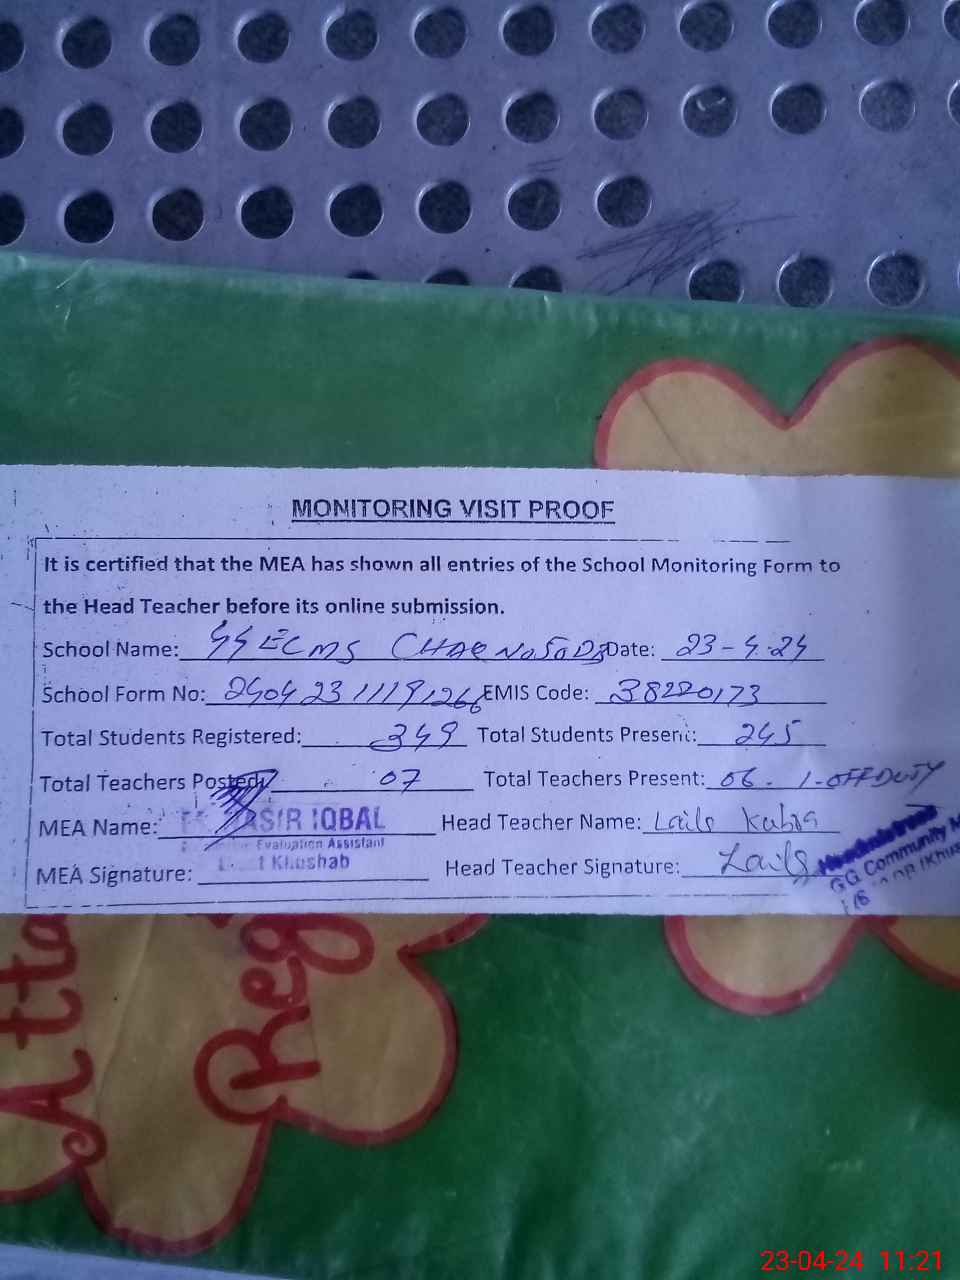 MONITORING VISIT PROOF
It is certified that the MEA has shown all entries of the School Monitoring Form to
the Head Teacher before its online submission.
School Name: GGECMS CHAK No 50 DB Date: 23-4-24
School Form No: 240423111191266 EMIS Code: 38220173
Total Students Registered: 349 Total Students Present: 245
Total Teachers Posted: 07 Total Teachers Present: 06 - 1-OFF DUTY
MEA Name: ASIR IQBAL Head Teacher Name: Laila Kubra
Evaluation Assistant
Khushab
MEA Signature: Head Teacher Signature: Laila
Headmistress
GG Community
Atta
Reg
23-04-24 11:21